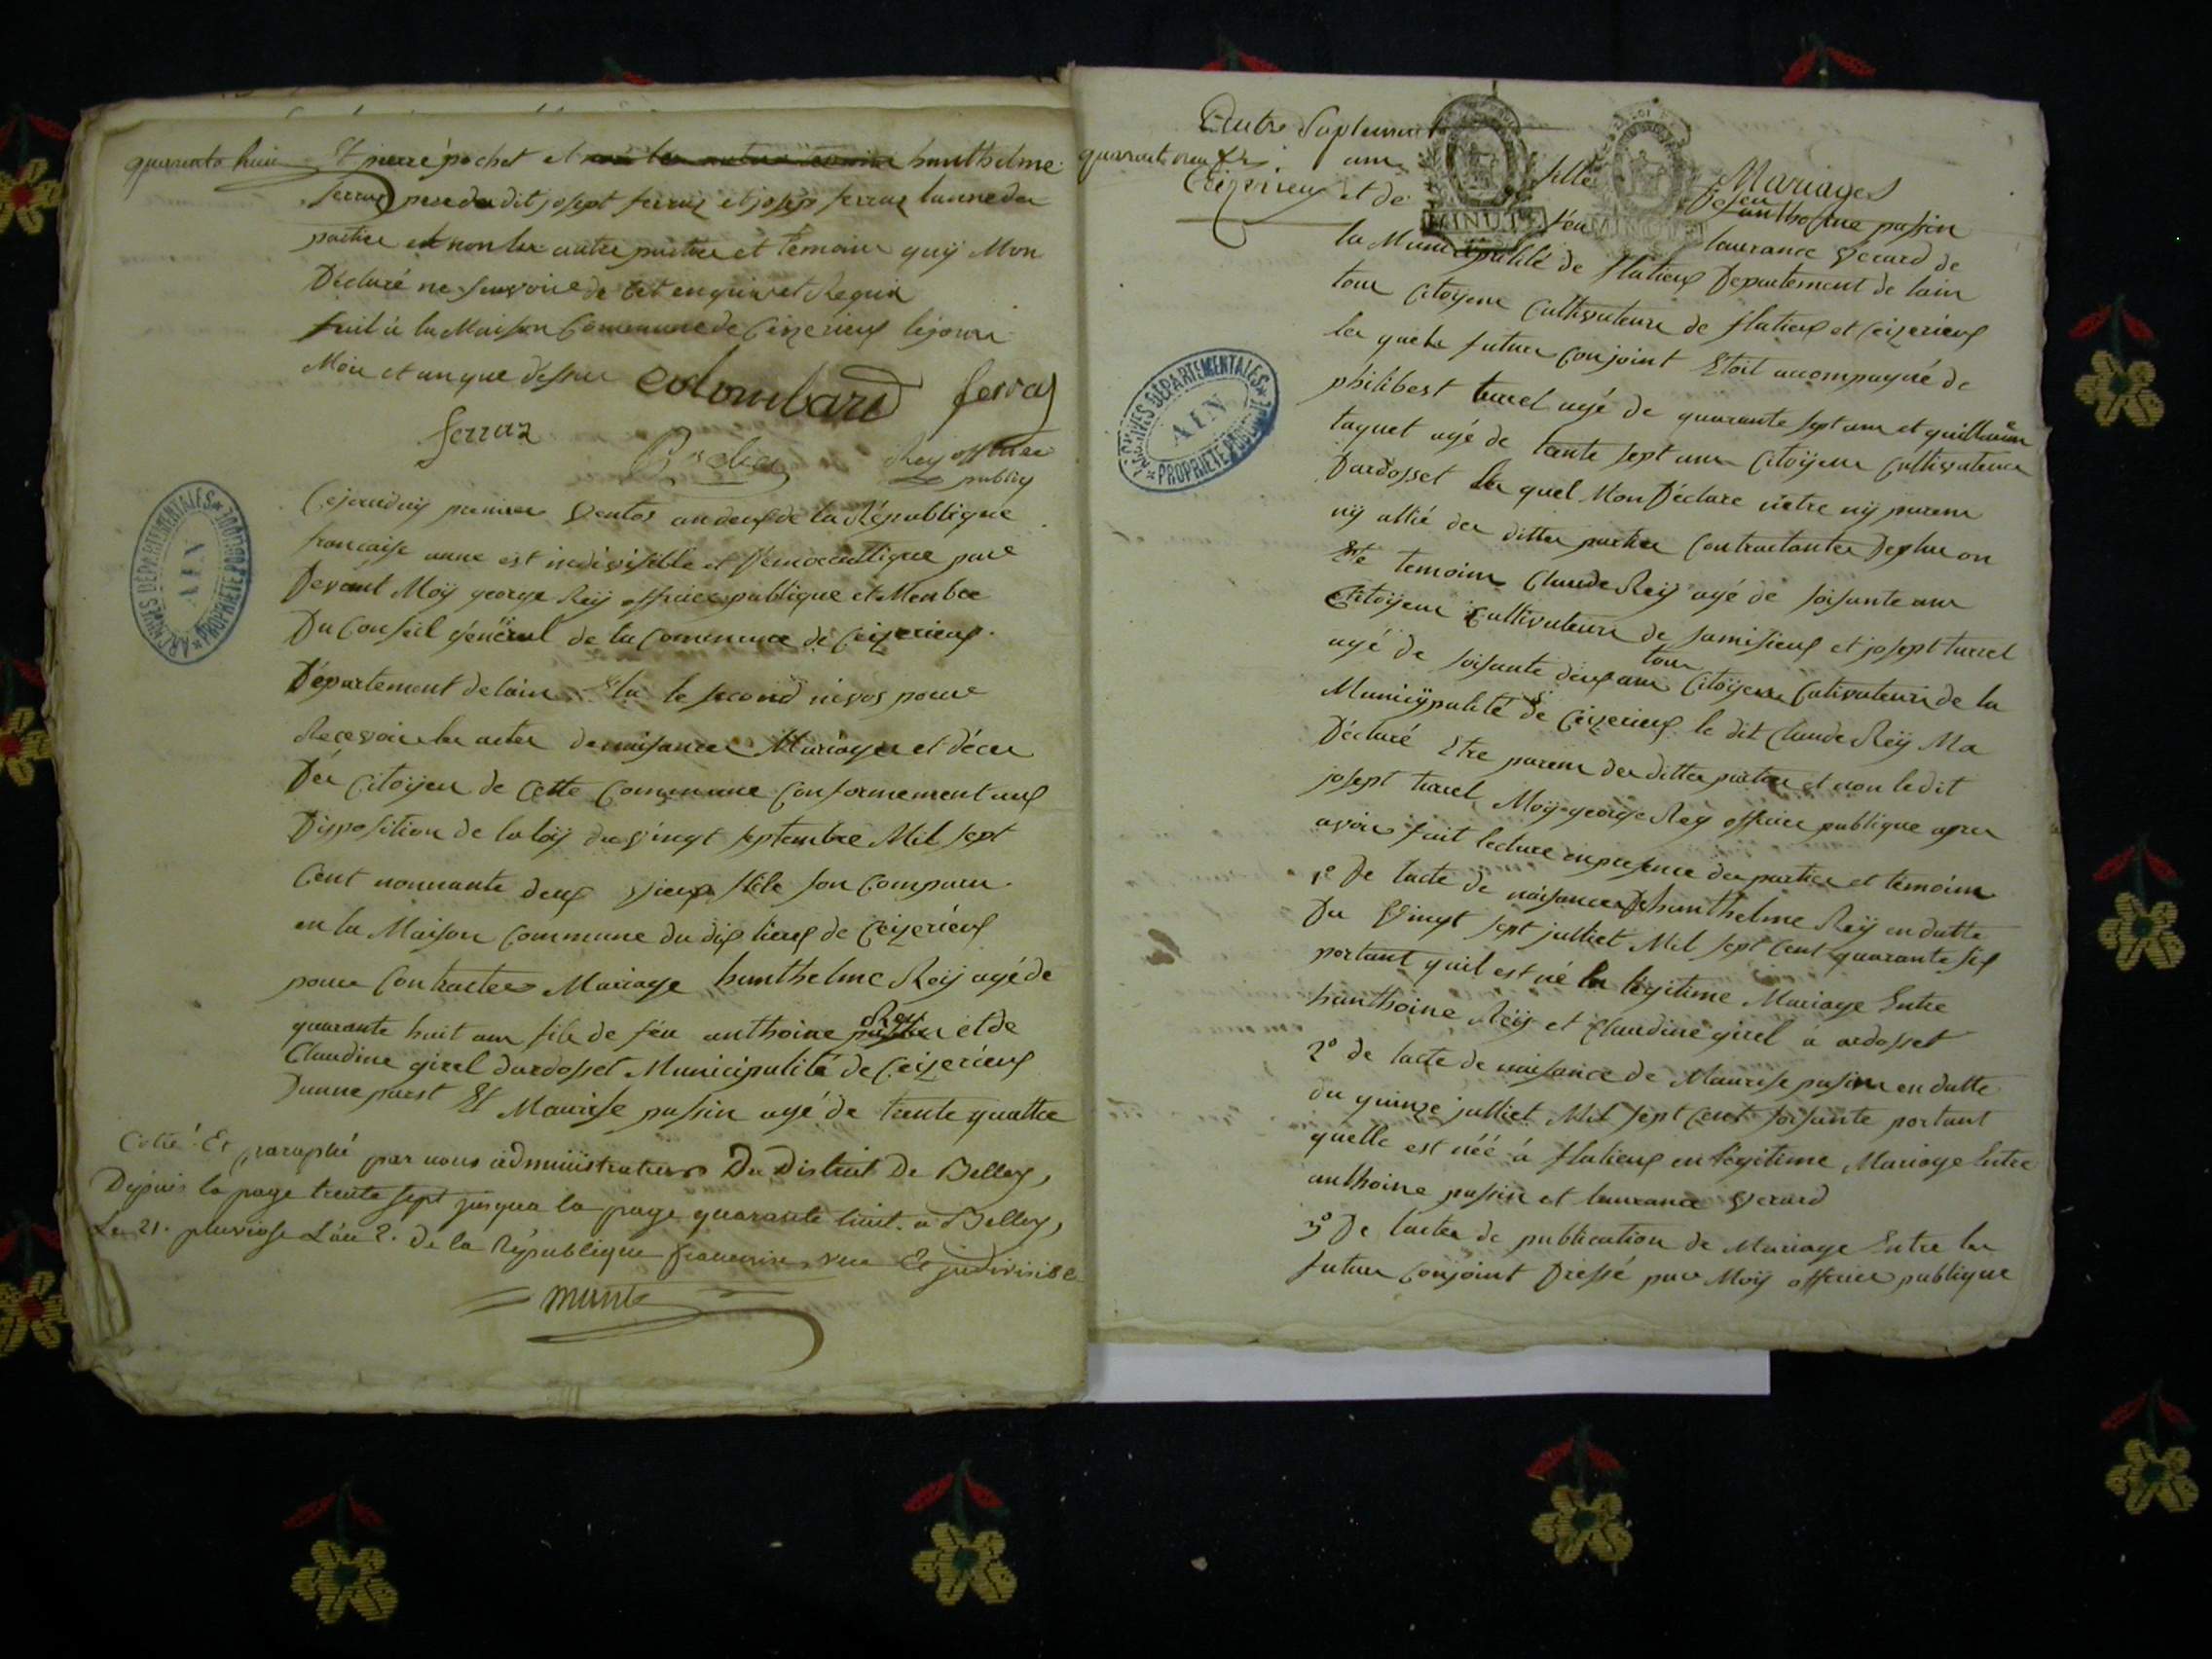 quarante huit
Et pierre pochet et hanthelme
ferraz pere du dit josept ferraz et josep ferraz lunne der
partier et non ler autre partier et temoin quÿ Mon
Déclaré ne scavoire de cet enquir et Requir
fait à la Maison Commune de Ceizerieux lejour
Moir et an que dessur
colombard ferraz
ferraz
Reÿ officier
publiq
Cejourduÿ premier Ventos an deux de la République
francaise unne est indivisible et Démocratique par
Devant Moÿ george Reÿ officier publique et Menbre
Du Conseil général de la Commune de Ceizerieux
Département de lain Elu le second nivos pour
Recevoir ler acter de naisancer Mariager et décer
Der Citoÿen de Cette Commune Conformement aux
Disposition de la loÿ du vingt septembre Mil sept
Cent nonnante deux vieux stile son Comparu
en la Maison Commune du dix lieux de Ceizerieux
pour Contracter Mariage hanthelme Reÿ agé de
Reÿ
quarante huit anr fils de feu anthoine et de
Claudine girel dardosset Municipalité de Ceizerieux
Dunne parst Et Mourise passin agé de trente quattre
Cotté Et paraphé par nous administrateurs Du District De Belley,
Depuis la page trente sept jusqua la page quarante huit. a Belley,
Le 21. pluviose L'an 2. de la République francaise, une Et indivisible
ARCHIVES DÉPARTEMENTALES
AIN
PROPRIÉTÉ PUBLIQUE
quarante neuf
Ceizerieux
Mariages
anr fille De feu anthoine passin
et de feu laurance Verard de
MINUTE
MINUTE
la Municipalité de flatieux Departement de lain
tour Citoÿenr Cultivateurr de flatieux et Ceizerieux
ler quelr futurr Conjoint Etoit accompagné de
philibest turel agé de quarante sept anr et guillaume
taquet agé de trente sept anr Citoÿenr Cultivateur
Dardosset ler quel Mon Déclare nètre nÿ parenr
nÿ allié der ditter partier Contractanter Deplur on
Eté temoinr Claude Reÿ agé de soisante anr
Citoÿenr Cultivateur de samisieux et josept turrel
tour
agé de soisante deux anr Citoÿenr Cultivateurr de la
Municÿpalité de Ceizerieux le dit Claude Reÿ Ma
Déclaré Etre parenr der ditter partier et non ledit
josept turrel Moÿ george Reÿ officier publique aprer
avoir fait lecture en presence der partier et témoinr
1º De lacte de naisance Dhanthelme Reÿ en datte
Du Vingt sept julliet Mil sept Cent quarante six
portant quil est né en légitime Mariage Entre
hanthoine Reÿ et Claudine girel à ardosset
2º de lacte de naisance de Mourise passin en datte
du quinze julliet Mil sept Cent soisante portant
quelle est néé à flatieux en légitime Mariage Entre
anthoine passin et laurance Verard
3º De lacter de publication de Mariage Entre ler
futurr Conjoint Dressé par Moÿ officier publique
ARCHIVES DÉPARTEMENTALES
AIN
PROPRIÉTÉ PUBLIQUE